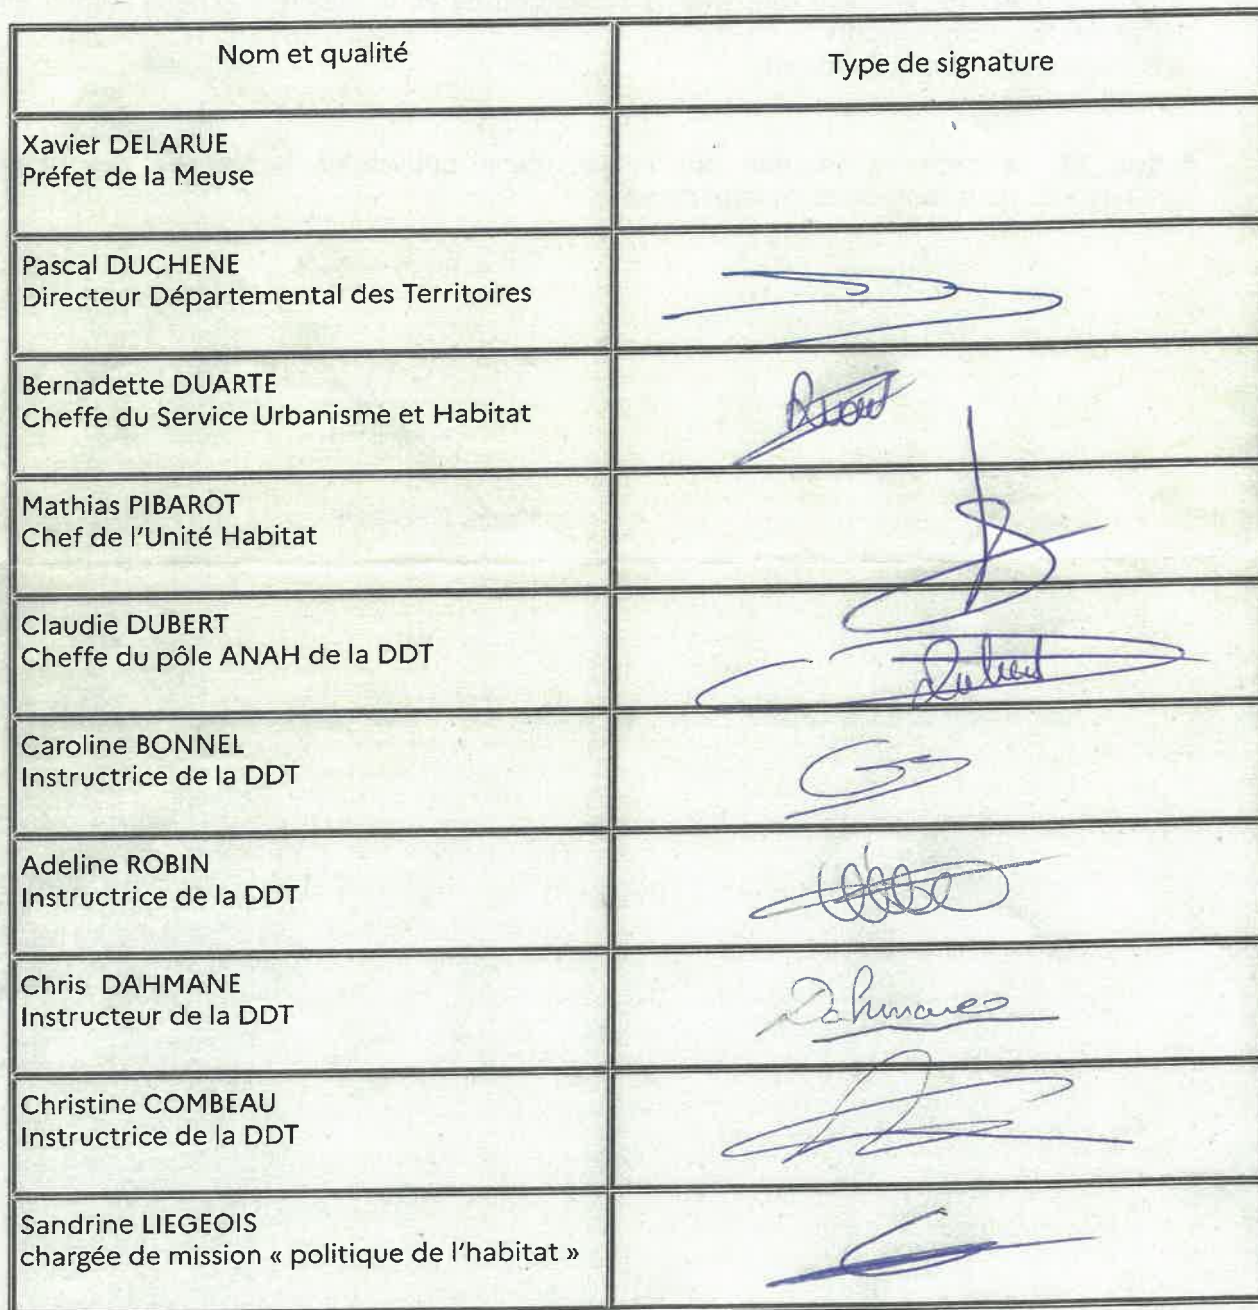 Nom et qualité
Type de signature
Xavier DELARUE
Préfet de la Meuse
Pascal DUCHENE
Directeur Départemental des Territoires
Bernadette DUARTE
Cheffe du Service Urbanisme et Habitat
Mathias PIBAROT
Chef de l'Unité Habitat
Claudie DUBERT
Cheffe du pôle ANAH de la DDT
Dubert
Caroline BONNEL
Instructrice de la DDT
Adeline ROBIN
Instructrice de la DDT
Chris DAHMANE
Instructeur de la DDT
Christine COMBEAU
Instructrice de la DDT
Sandrine LIEGEOIS
chargée de mission « politique de l'habitat »